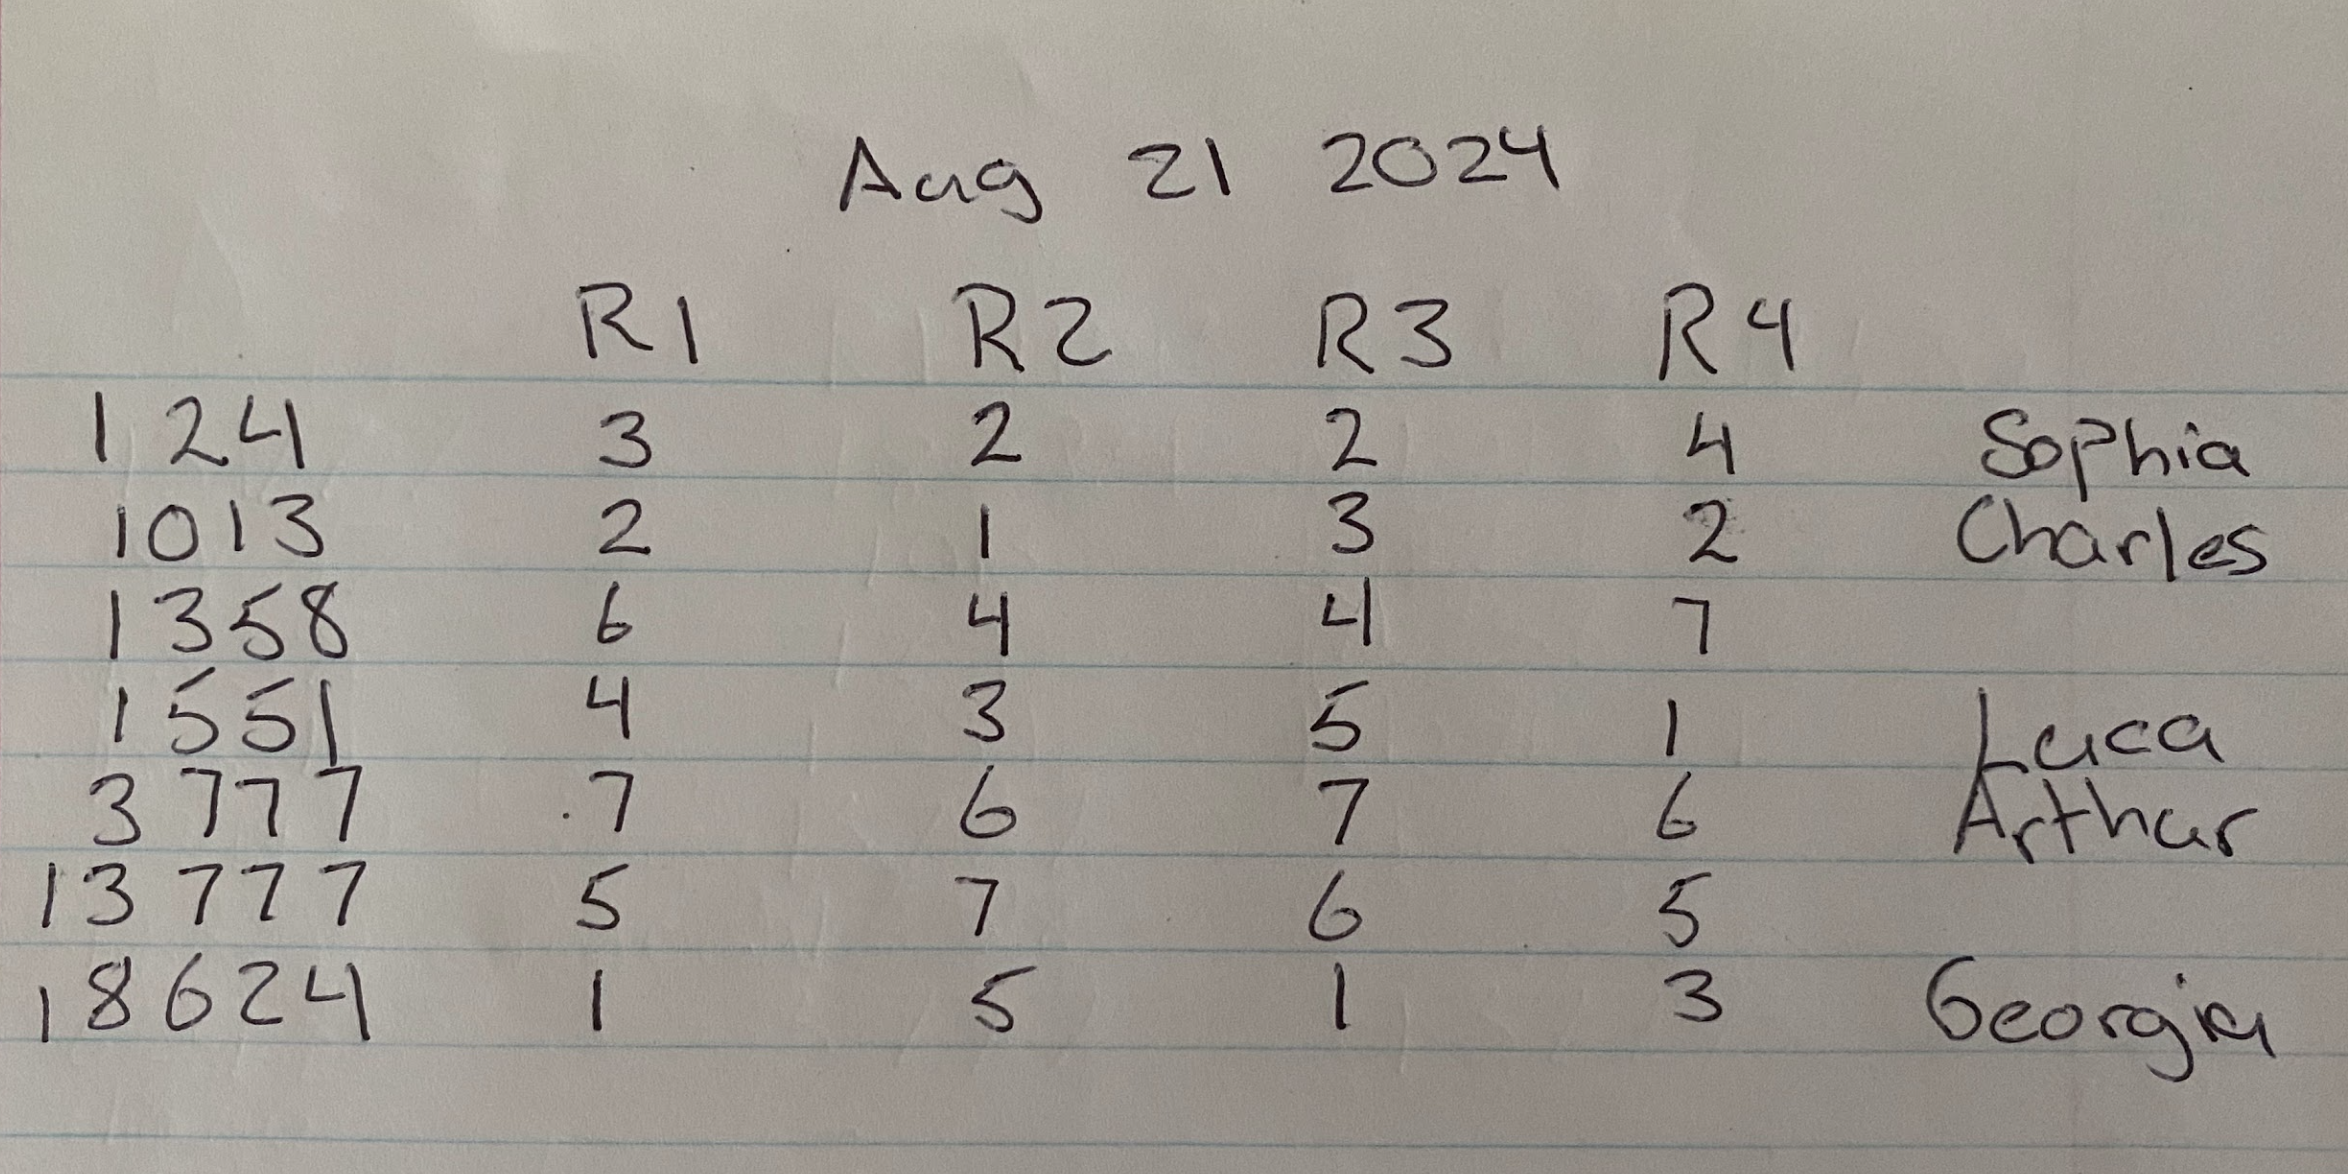 Aug 21 2024
R1 R2 R3 R4
124 3 2 2 4 Sophia
1013 2 1 3 2 Charles
1358 6 4 4 7
1551 4 3 5 1 Luca
3777 7 6 7 6 Arthur
13777 5 7 6 5
18624 1 5 1 3 Georgia